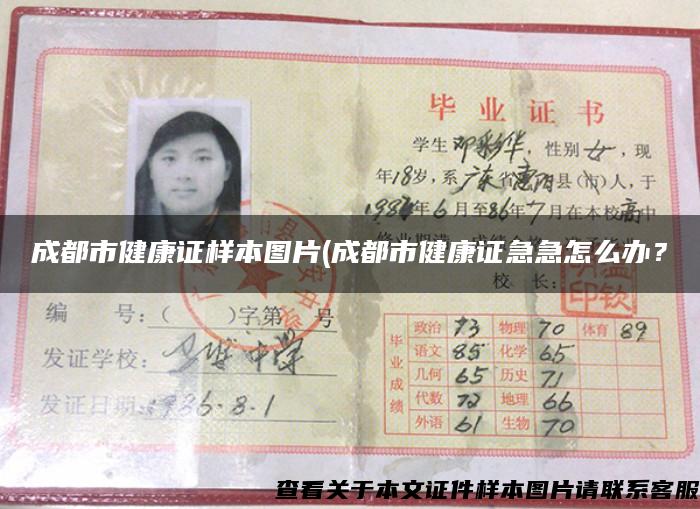 毕业证书
学生邓彩华，性别女，现
年18岁，系广东省惠阳县（市）人，于
1984年6月至86年7月在本校高中
成都市健康证样本图片(成都市健康证急急怎么办？
校长：
编 号：（ ）字第 号
发证学校：
中学
发证日期：1986.8.1
毕业成绩
政治 73 物理 70 体育 89
语文 85 化学 65
几何 65 历史 71
代数 72 地理 66
外语 61 生物 70
查看关于本文证件样本图片请联系客服